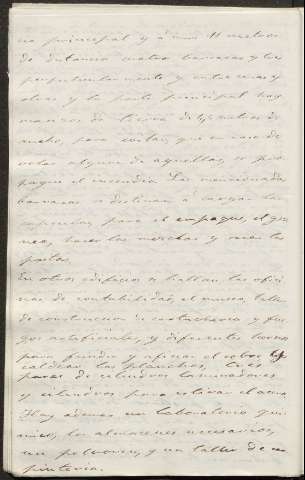 no principal y á unos 11 metros
de distancia cuatro barracas y los
perpendicularmente y entre unas y
otras y la parte principal hay
macizos de tierra de 15 metros de
ancho, para evitar, que en caso de
volar alguna de aquellas, se pro-
pague el incendio. Las mencionadas
barracas se destinan á cargar las
para el empaque, el gra-
neo, hacer las mechas y secar las
pastas.
En otros edificios se hallan las ofici-
nas de contabilidad, el museo, taller
de construccion de cartuchería y fue-
gos artificiales, y diferentes hornos
para fundir y afinar el cobre y
caldear las planchas, tres
pares de cilindros laminadores
y cilindros para estirar el
Hay ademas un laboratorio quí-
mico, los almacenes necesarios,
un polvorin, y un taller de ca
pintería.